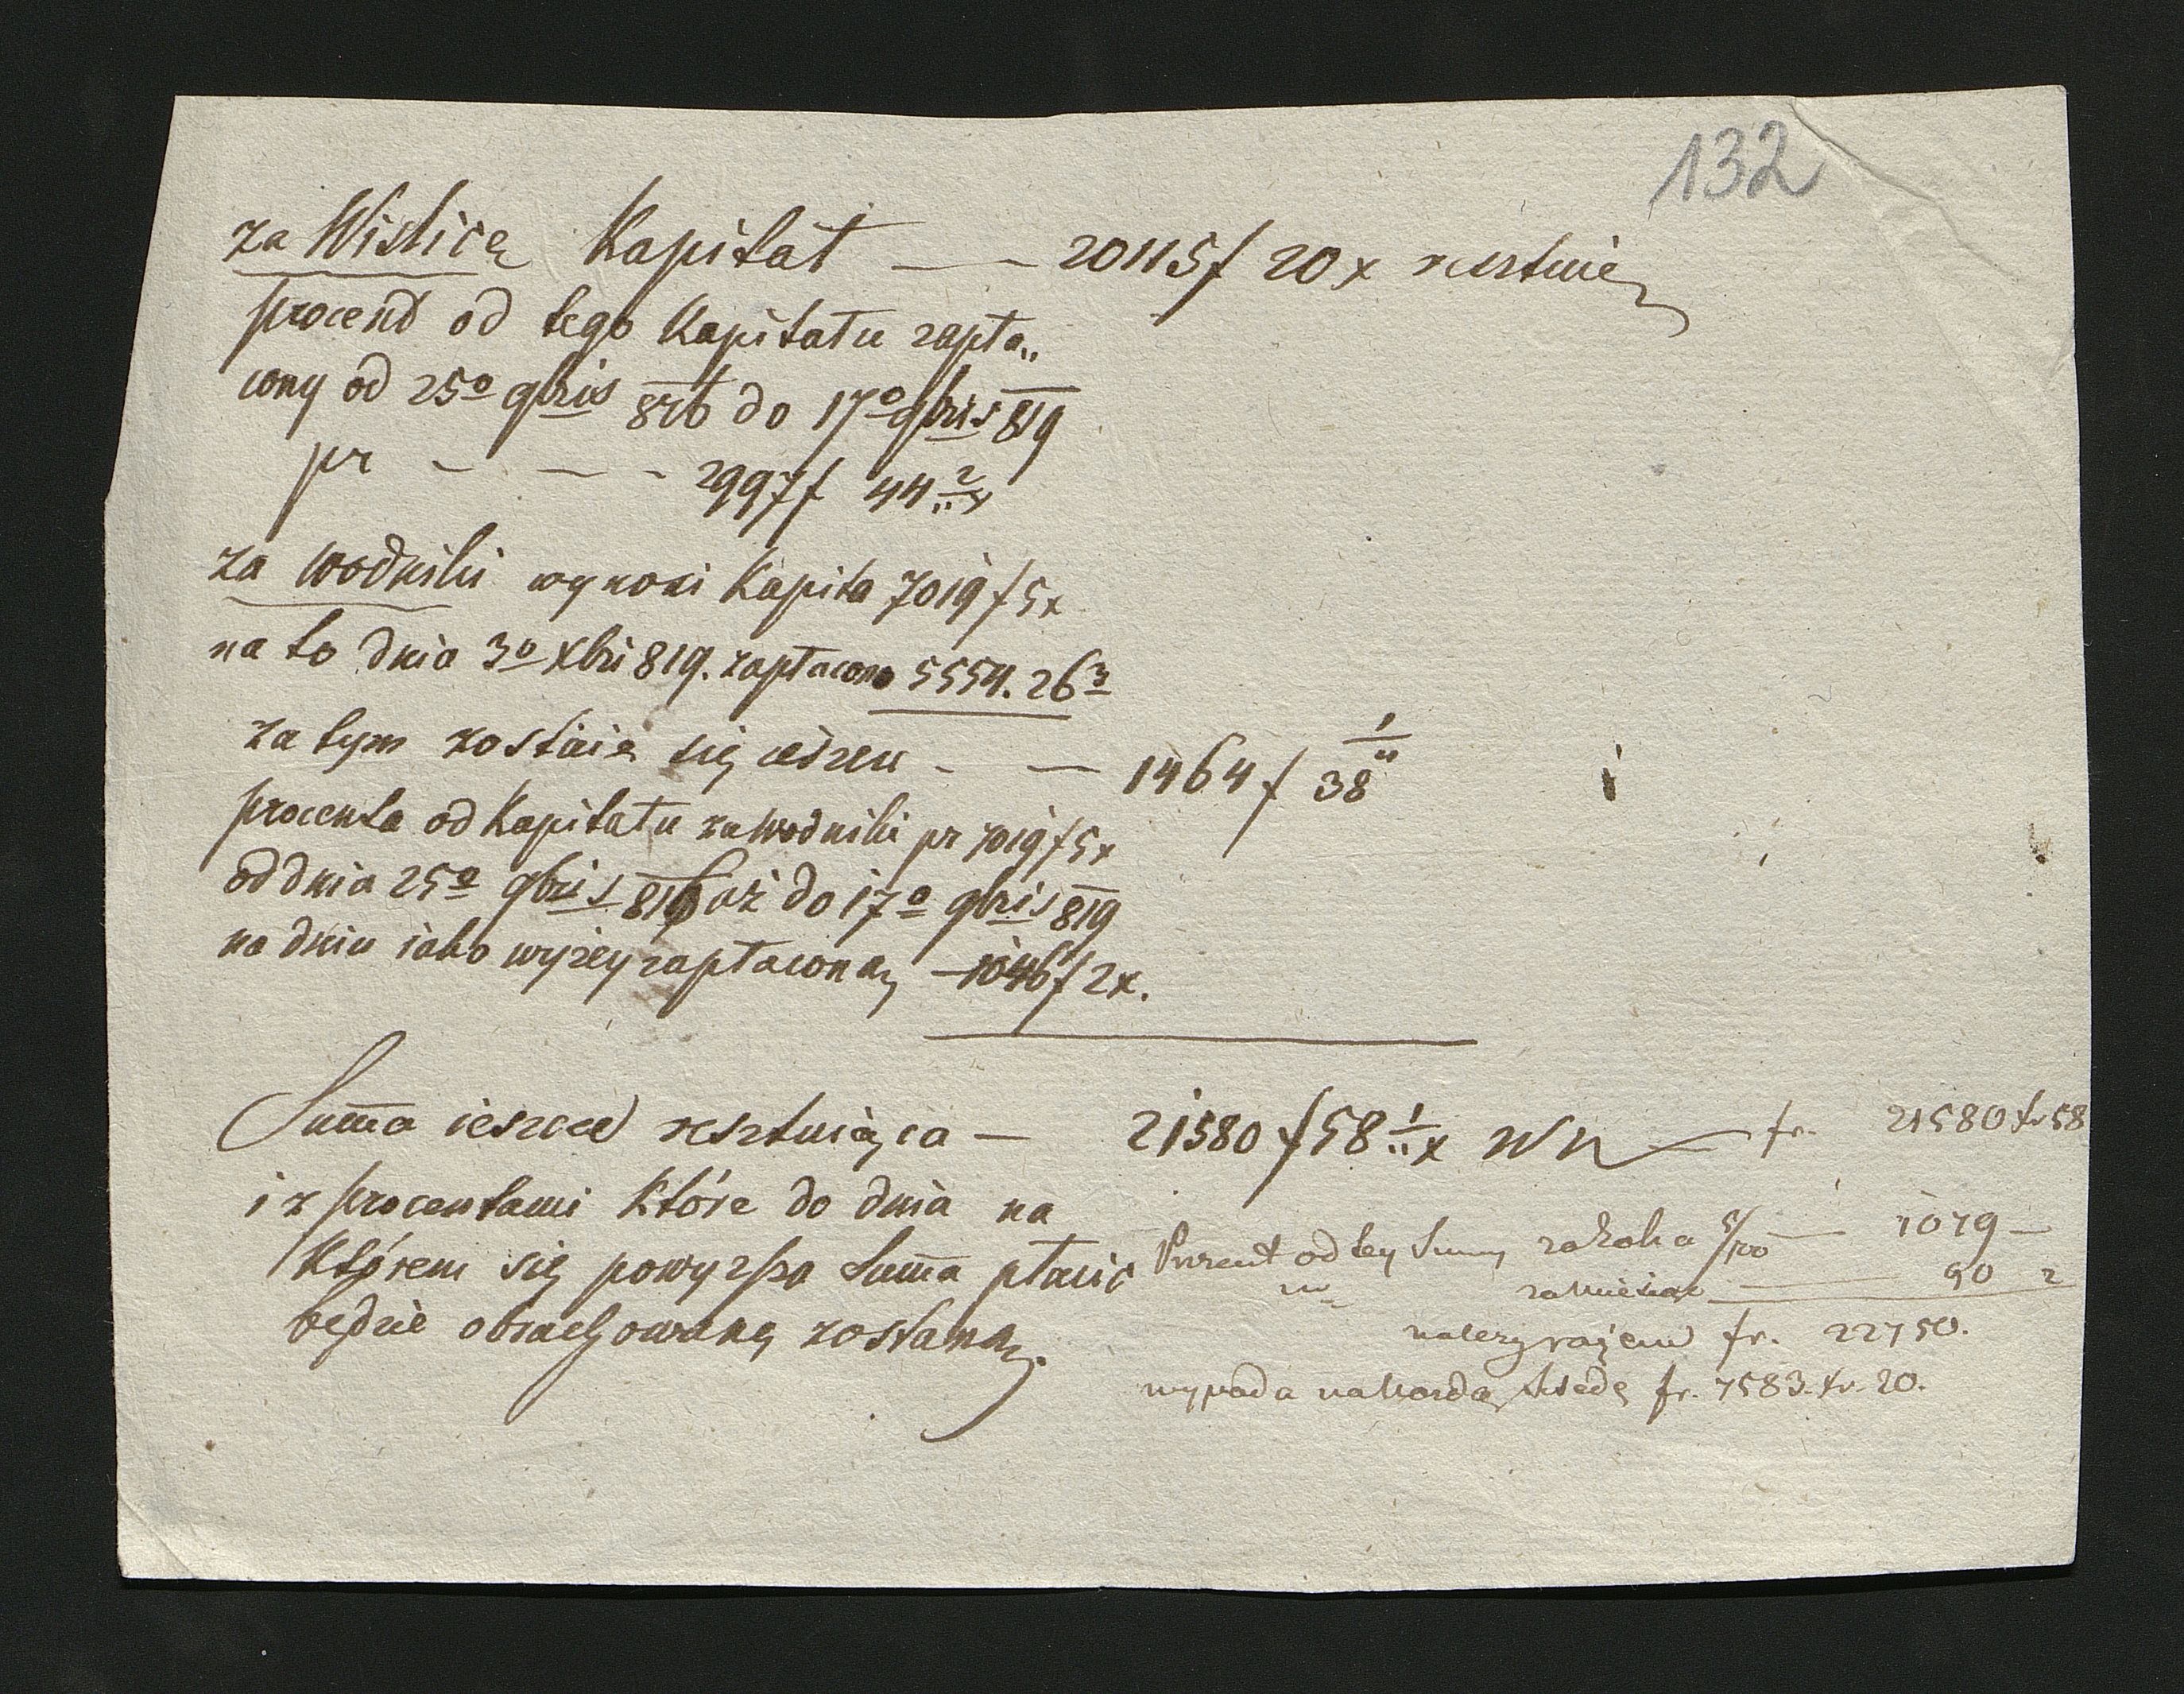 132
za Wislicę Kapitał — 20115 f 20 x restuie
procent od tego Kapitału zapła„
cony od 25º 9bris 816 do 17º 9bris 819
pr - - - 2997 f 44 2/4 x
za Wodniki wynosi Kapita 7019 f 5 x
na to dnia 3º Xbri 819. zapłacono 5554. 26 3
za tym zostaie się ieszcu - — 1464 f 38 1/4
procenta od Kapitału za Wodniki pr 7019 f 5 x
od dnia 25º 9bris 816 aż do 17º 9bris 819
na dniu iako wyżey zapłaconą — 1046 f 2 x.
Summa ieszcze resztuiąca — 21580 f 58 1/4 x WW — fr. 21580 xr 58
i z procentami Które do dnia na
Którem się powyższa Summa płacić
będzie obrachowane zostaną.
Procent od tey Sumy za Roku 5/100 — 1079 —
za Miesiąc — 90 2
należy razem fr. 22750.
wypada na Każdą Schedę fr. 7583. xr. 20.